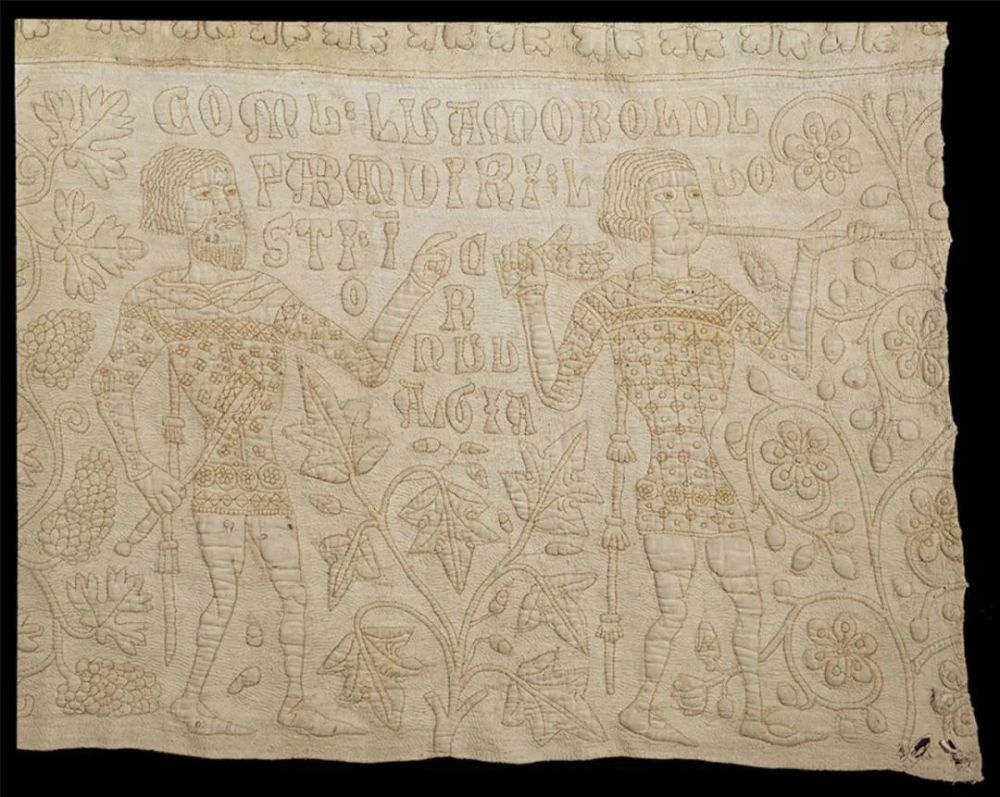 COMU: LU AMOROLDU
FA BANDIRI: LU O
STI: Ī C
O R
NUU
ALGIA